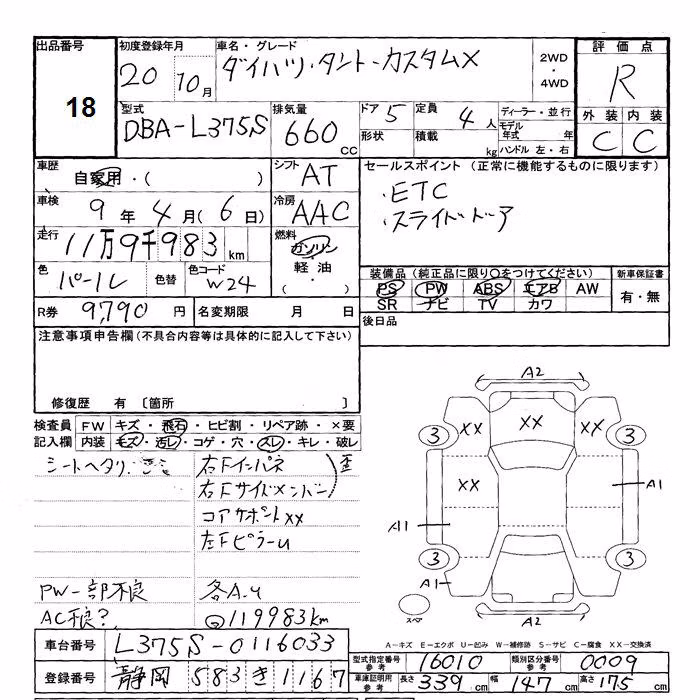 出品番号 18
初度登録年月 20 10月
車名・グレード ダイハツ・タントーカスタムX
2WD・4WD
評価点 R
外装 内装
C C
型式 DBA-L375S
排気量 660 CC
ドア 5
形状
定員 4人
積載 kg
ディーラー・並行
モデル年式 年
ハンドル 左・右
車歴 自家用・( )
シフト AT
セールスポイント(正常に機能するものに限ります)
・ETC
・スライドドア
車検 9年4月(6日)
冷房 AAC
走行 11万9千983km
燃料 ガソリン・軽油・( )
色 パール 色替 色コード W24
装備品(純正品に限り○をつけてください)
PS PW ABS エアB AW
SR ナビ TV カワ
新車保証書 有・無
R券 9,790円
名変期限 月 日
後日品
注意事項申告欄(不具合内容等は具体的に記入して下さい)
修復歴 有〔箇所 〕
検査員記入欄
FW キズ・飛石・ヒビ割・リペア跡・×要
内装 キズ・汚レ・コゲ・穴・スレ・キレ・破レ
シートヘタリ、
右Fインパネ
右Fサイドメンバー
歪
コアサポートXX
左FピラーU
PW一部不良
各A.U
AC不良?
119983km
A2
XX XX XX
3 3
XX
A1
A1
3 3
A1
A2
スペア
A-キズ E-エクボ U-凹み W-補修跡 S-サビ C-腐食 XX-交換済
車台番号 L375S-0116033
登録番号 静岡 583 き 1167
型式指定番号 参考 16010
類別区分番号 参考 0009
車庫証明用 参考 長さ 339cm 幅 147cm 高さ 175cm